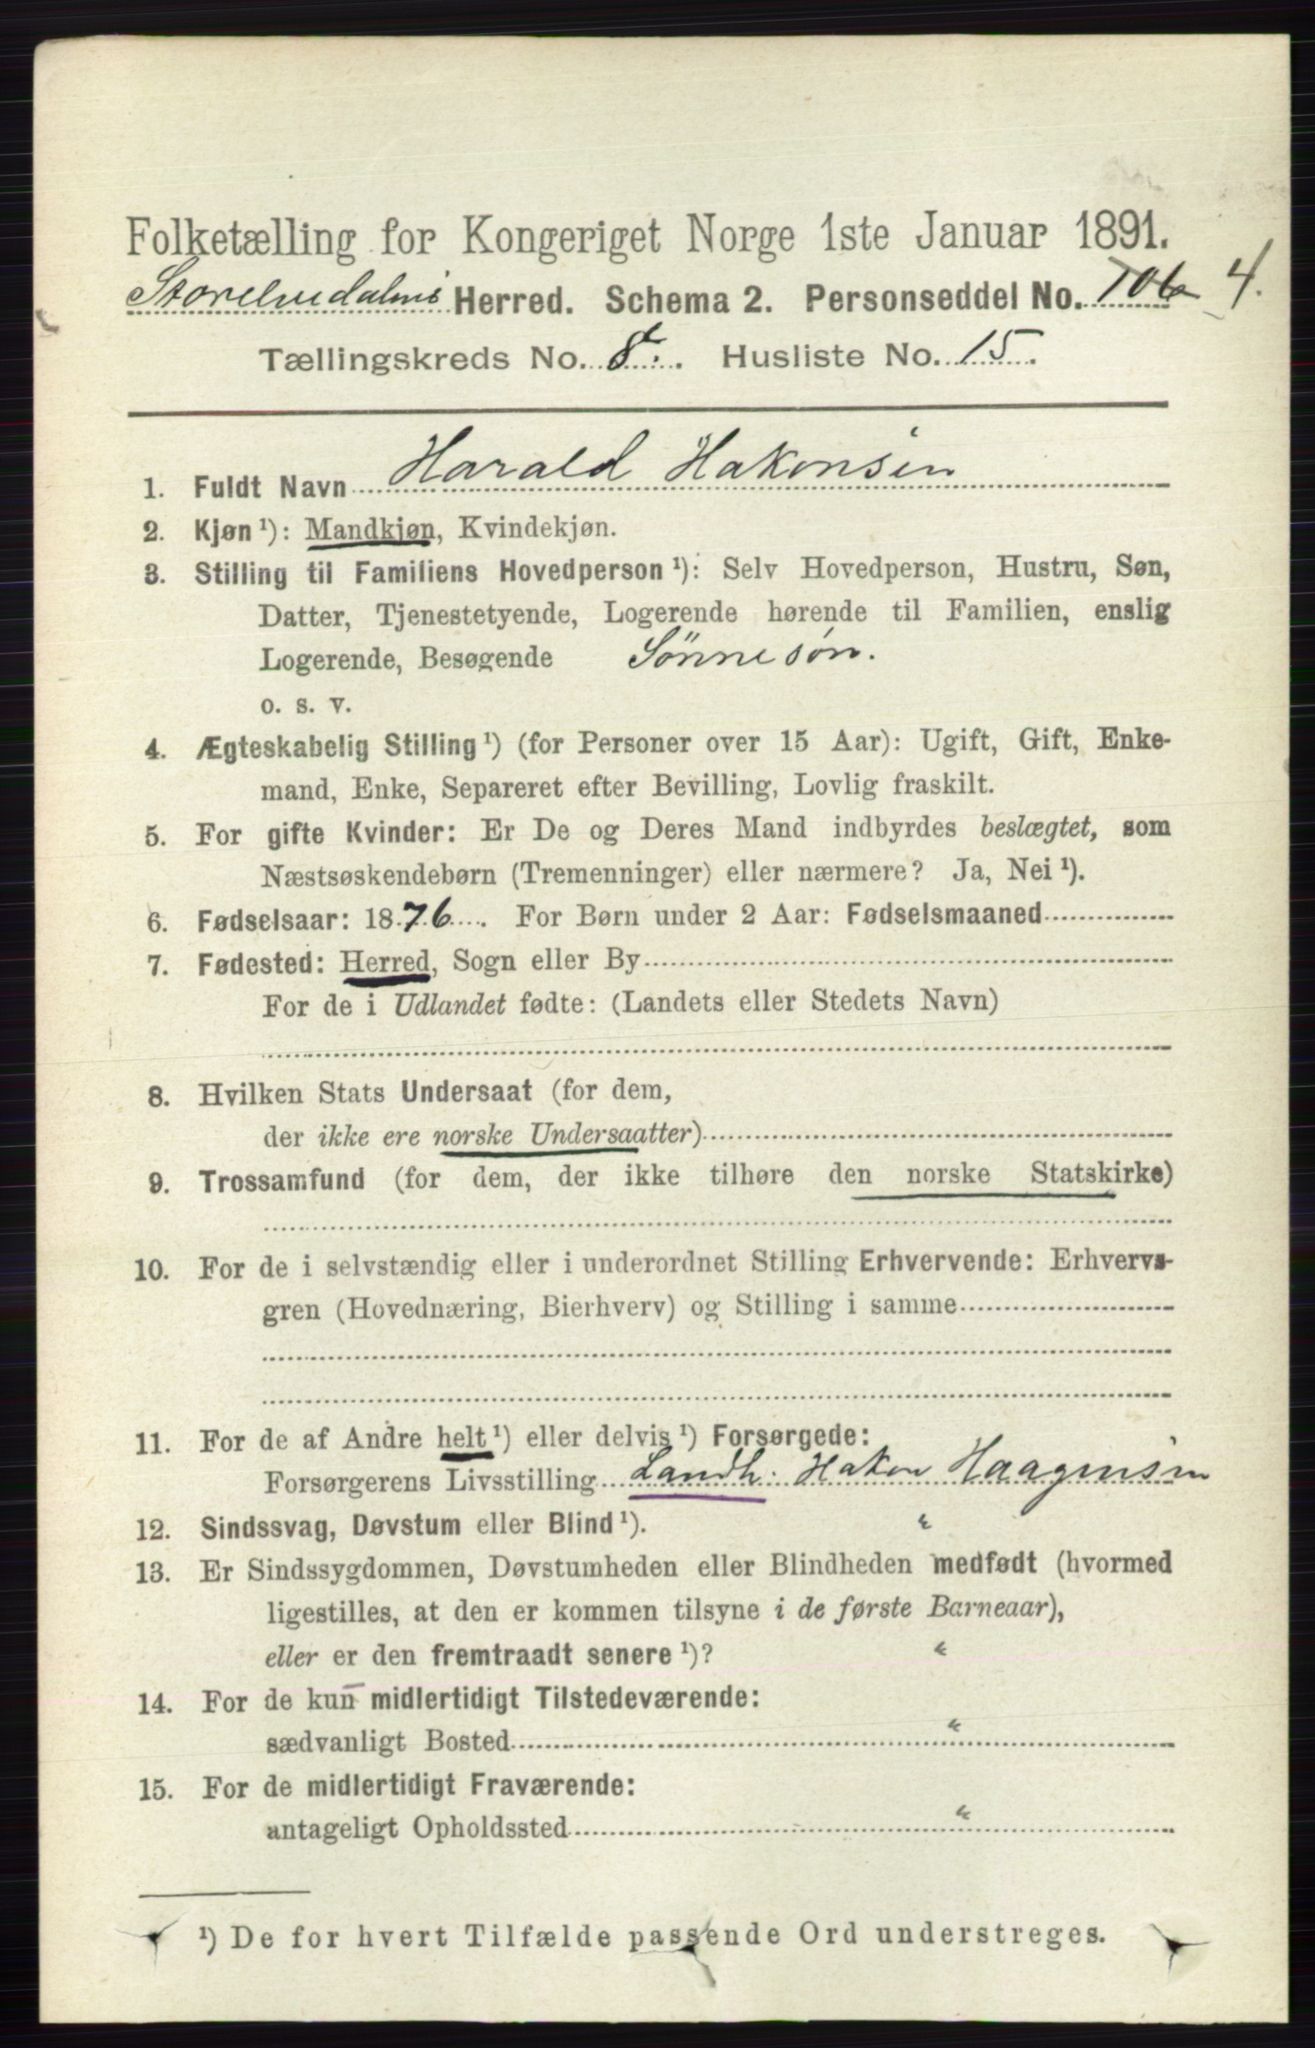 Folketælling for Kongeriget Norge 1ste Januar 1891.
Storelvedalens Herred. Schema 2. Personseddel No. 106 4.
Tællingskreds No. 8. Husliste No. 15.
1. Fuldt Navn Harald Hakonsen
2. Kjøn ¹): Mandkjøn, Kvindekjøn.
3. Stilling til Familiens Hovedperson ¹): Selv Hovedperson, Hustru, Søn,
Datter, Tjenestetyende, Logerende hørende til Familien, enslig
Logerende, Besøgende Sønnesøn.
o. s. v.
4. Ægteskabelig Stilling ¹) (for Personer over 15 Aar): Ugift, Gift, Enke-
mand, Enke, Separeret efter Bevilling, Lovlig fraskilt.
5. For gifte Kvinder: Er De og Deres Mand indbyrdes beslægtet, som
Næstsøskendebørn (Tremenninger) eller nærmere? Ja, Nei ¹).
6. Fødselsaar: 1876. For Børn under 2 Aar: Fødselsmaaned
7. Fødested: Herred, Sogn eller By
For de i Udlandet fødte: (Landets eller Stedets Navn)
8. Hvilken Stats Undersaat (for dem,
der ikke ere norske Undersaatter)
9. Trossamfund (for dem, der ikke tilhøre den norske Statskirke)
10. For de i selvstændig eller i underordnet Stilling Erhvervende: Erhvervs-
gren (Hovednæring, Bierhverv) og Stilling i samme
11. For de af Andre helt ¹) eller delvis ¹) Forsørgede:
Forsørgerens Livsstilling Landh. Hakon Haagensen
12. Sindssvag, Døvstum eller Blind ¹). "
13. Er Sindssygdommen, Døvstumheden eller Blindheden medfødt (hvormed
ligestilles, at den er kommen tilsyne i de første Barneaar),
eller er den fremtraadt senere ¹)? "
14. For de kun midlertidigt Tilstedeværende:
sædvanligt Bosted "
15. For de midlertidigt Fraværende:
antageligt Opholdssted "
¹) De for hvert Tilfælde passende Ord understreges.